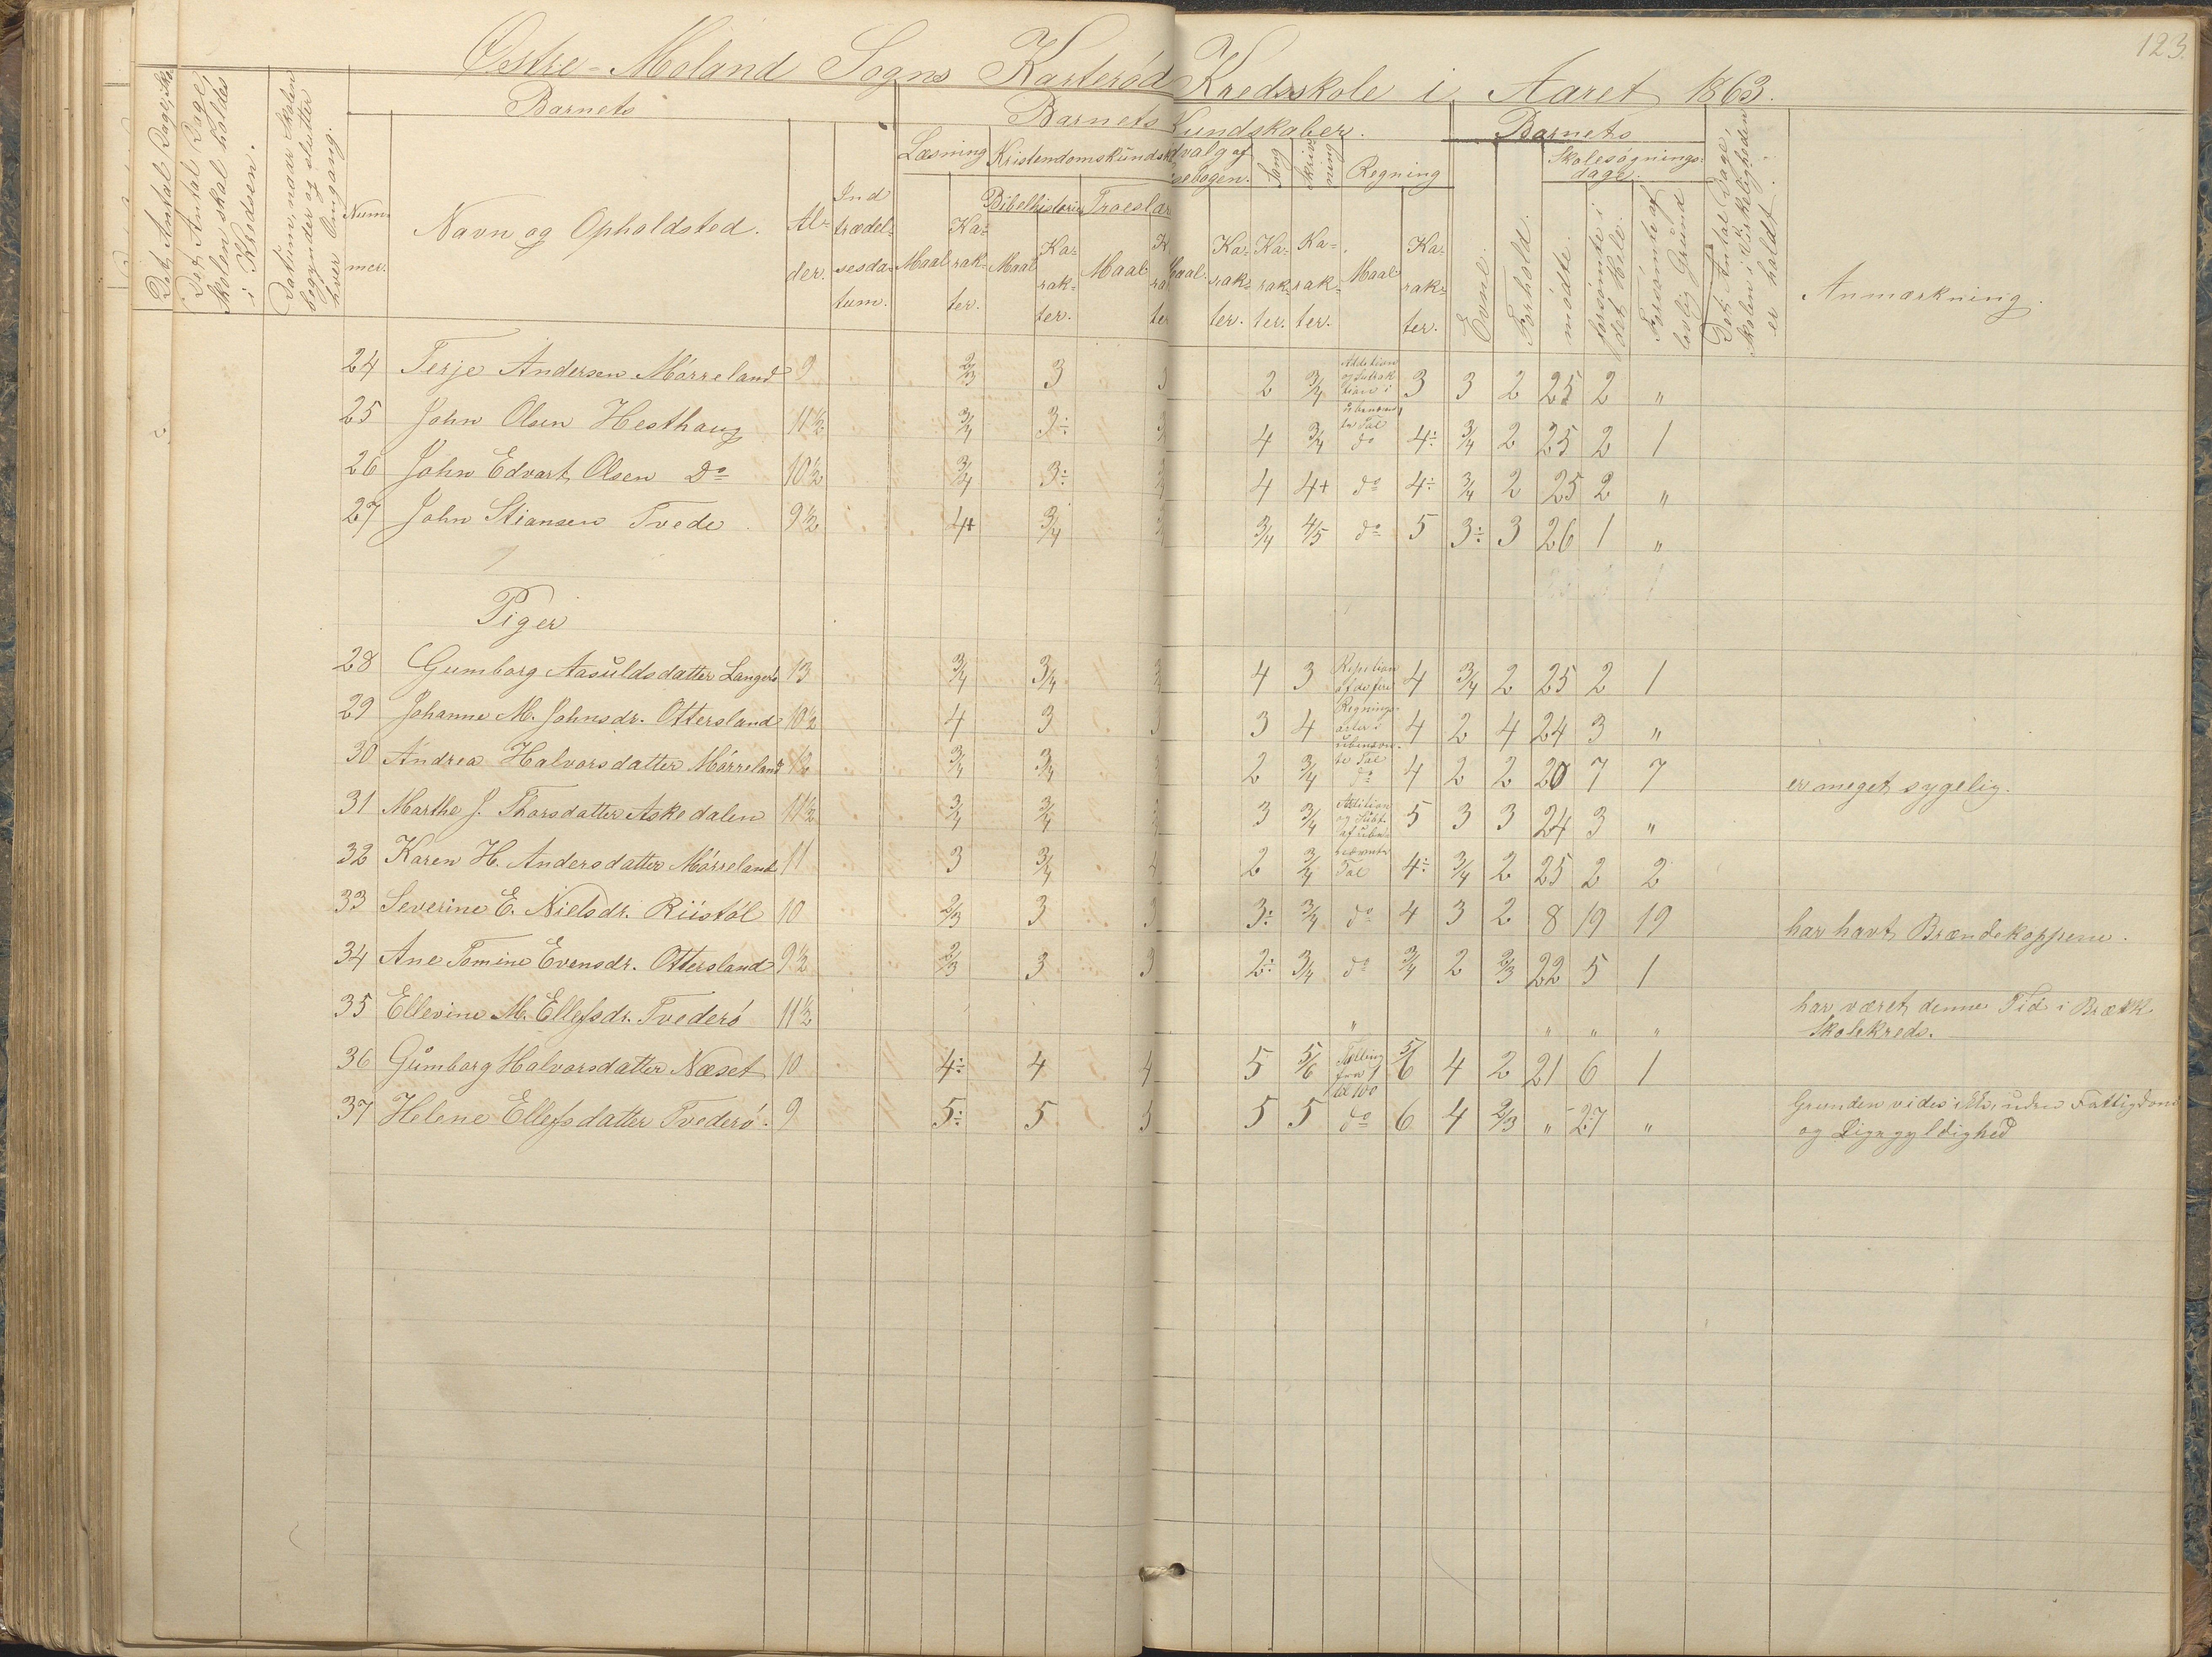 123.
Østre-Moland Sogns Karterød Kredsskole i Aaret 1863.
Det Antal Dage, Sko
Det Antal Dage, Skolen skal holdes i Kredsen.
Datum, naar Skolen begynder og slutter hver Omgang.
Barnets
Nummer.
Navn og Opholdsted.
Alder.
Indtrædelsesdatum.
Barnets Kundskaber.
Læsning
Maal
Karakter.
Kristendomskundsk
Bibelhistorie
Maal
Karakter.
Troeslær
Maal
Udvalg af Læsebogen.
Maal.
Karakter.
Sang
Karakter.
Skrivning
Karakter.
Regning
Maal
Karakter.
Barnets
Evne.
Forhold.
Skolesøgningsdage.
mødte.
forsømte i det Hele.
Forsømte af lovlig Grund
Det Antal Dage, Skolen i Virkeligheden er holdt.
Anmærkning.
24 Terje Andersen Mørreland 9 2/3 3 3 2 3/4 Addition og Subtraktion i ubenævnte Tal 3 3 2 25 2 "
25 John Olsen Hesthaug 11½ 3/4 3÷ 4 3/4 do 4÷ 3/4 2 25 2 1
26 John Edvart Olsen Do 10½ 3/4 3÷ 4 4+ do 4÷ 3/4 2 25 2 "
27 John Stiansen Tvede 9½ 4+ 3/4 3/4 4/5 do 5 3÷ 3 26 1 "
Piger
28 Gumborg Aasuldsdatter Langerø 13 3/4 3/4 4 3 Repetion af de fire Regningsarter i ubenævnte Tal 4 3/4 2 25 2 1
29 Johanne M. Johnsdr. Ottersland 10½ 4 3 3 3 4 4 2 4 24 3 "
30 Andrea Halvorsdatter Mørreland 3/4 3/4 2 3/4 do 4 2 2 20 7 7 er meget sygelig.
31 Marthe J. Thorsdatter Askedalen 11½ 3/4 3/4 3 3/4 Addition og Subt. af ubenævnte Tal 5 3 3 24 3 "
32 Karen H. Andersdatter Mørreland 11 3 3/4 4 2 3/4 4÷ 3/4 2 25 2 2
33 Severine E. Nielsdr. Riistøl 10 2/3 3 3 3÷ 3/4 do 4 3 2 8 19 19 har havt Brændekopperne.
34 Ane Tomine Evensdr. Ottersland 9½ 2/3 3 3 2÷ 3/4 do 3/4 2 2/3 22 5 1
35 Ellevine M. Ellefsdr. Tvederø 11½ " " " " har været denne Tid i Brækk
Skolekreds.
36 Gumborg Halvorsdatter Næset 10 4÷ 4 4 5 5/6 Tælling fra 1 til 100 5/6 4 2 21 6 1
37 Helene Ellefsdatter Tvederø. 9 5÷ 5 5 5 5 do 6 4 2/3 " 27 " Grunden vides ikke, uden Fattigdom
og Ligegyldighed